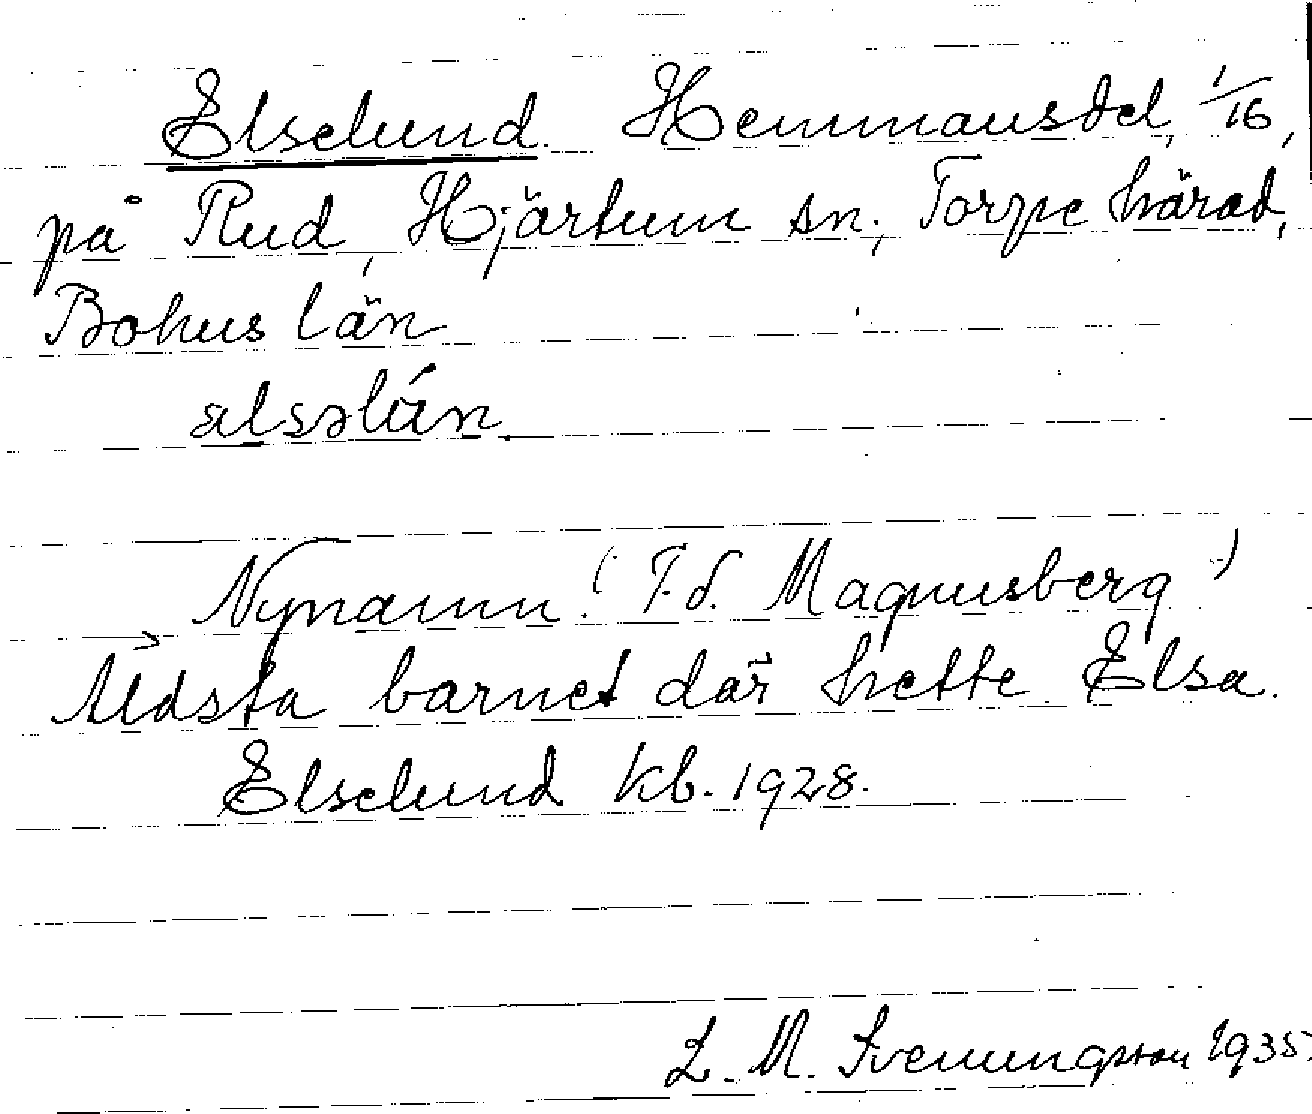 Elselund. Hemmansdel, 1/16,
på Rud, Hjärtum sn; Torpe härad,
Bohus län
Nynamn! (F.d. Magnusberg)
Äldsta barnet där hette Elsa.
Elselund kb. 1928.
L. M. Svenungsson 1935.